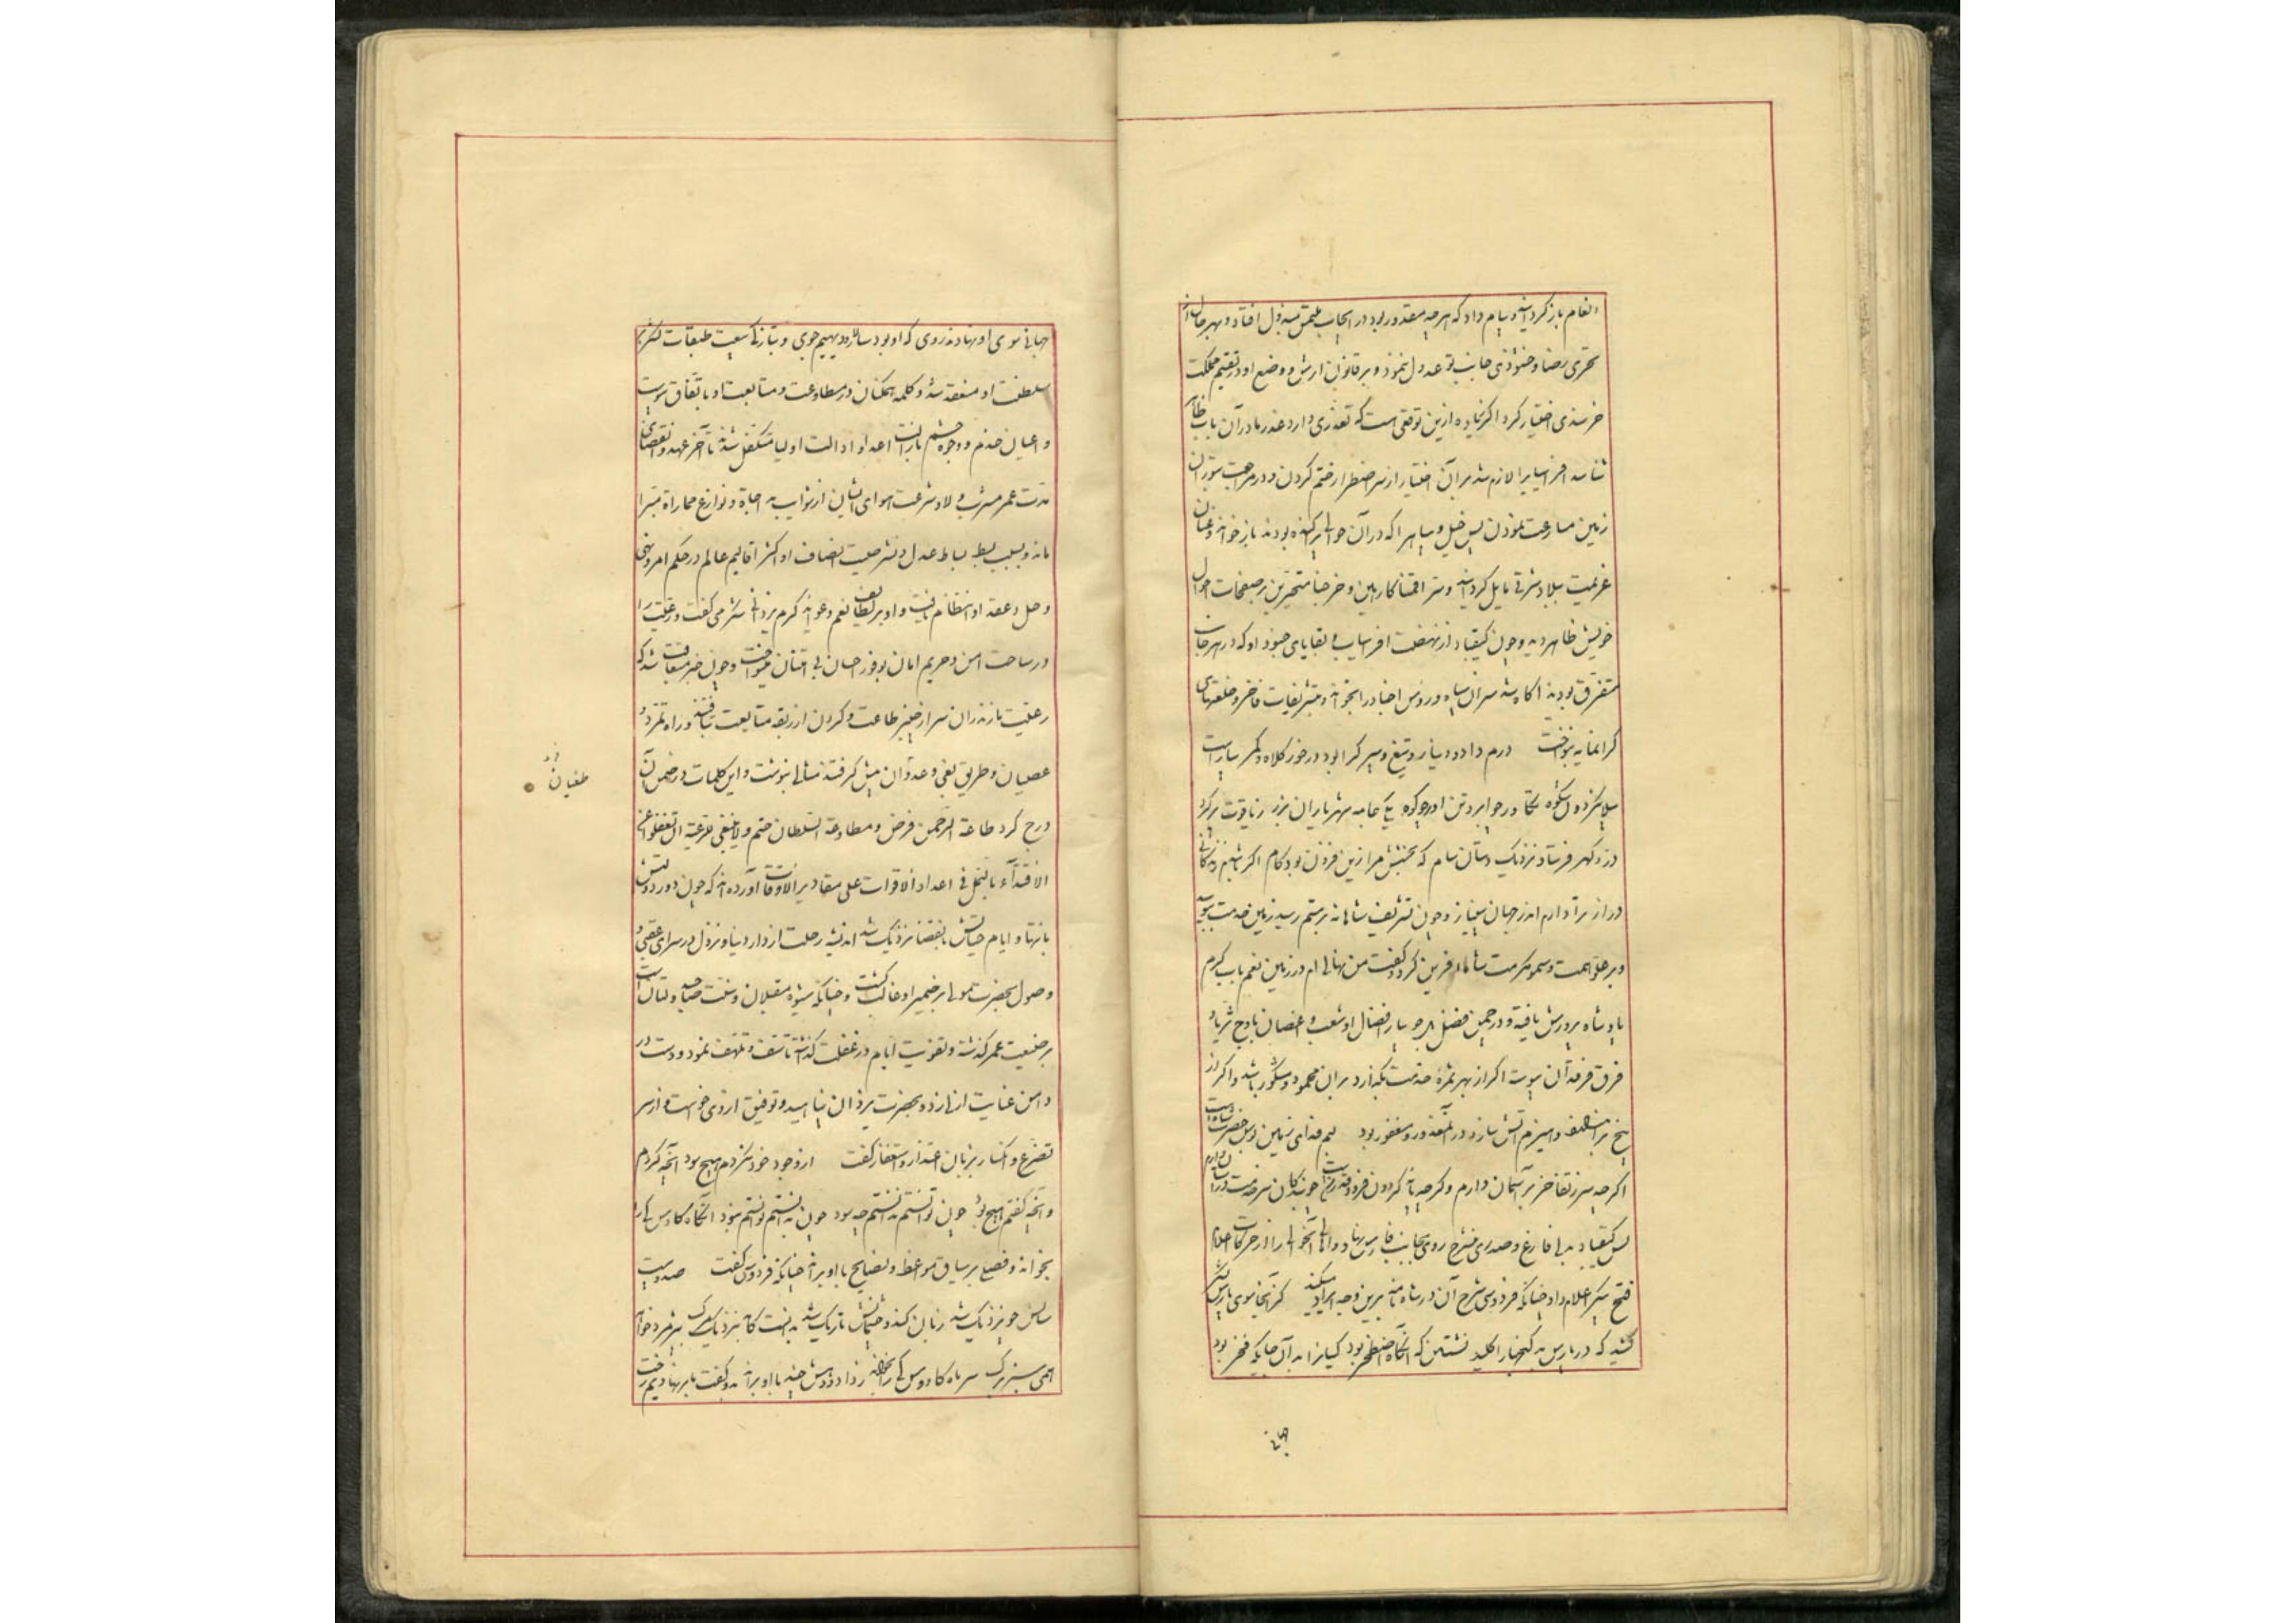 انعام باز گردانید و پیام داد که هر چه مقدور بود در ایجاب ملتمس مبذول افتاد و بهر حال از
تحری رضا و خشنودی جانب تو عدول ننمود و بر قانون ارش و وضع او در تقسیم مملکت
خرسندی اختیار کرد اکر زیاده ازین توقعی هست که تعذری دارد عذر ما در آن باب ظاهر
شناسد افراسیاب را لازم شد بر آن اختیار از سر اضطرار ختم کردن و در مراجعت بتوران
زمین مسارعت نمودن پس خیل و سپاه را که در آن حوالی پراکنده بودند باز خواند و عنان
عزیمت ببلاد شرقی مایل کردانید و
خویش ظاهر دید و چون کیقباد از نهضت افراسیاب و بقایای جنود او که در هر جانب
متفرق بودند اکاه شد سران سپاه و رؤس اجناد را بخواند و بتشریفات فاخر و خلعتهای
کرانمایه بنواخت درم داد و دینار و تیغ و سپر کرا بود در خور کلاه و کمر
یکی جامه شهریاران بزر ز یاقوت
در و کهر فرستاد نزدیک دستان سام که بخشش مرا زین فزون بود کام اکر باشدم زندکانی
دراز برآرم اندر جهان بی نیاز و چون تشریف شاهانه برستم رسید زمین خدمت ببوسید
و بر علو همت و سمو مکرمت شاه آفرین کرد و کفت من نهالی ام در زمین نعم بآب کرم
پادشاه پرورش یافته و در چمن فضل بر جویبار افضال او شعب و اغصان باوج ثریا و
فرق فرقدان پیوسته اکر از بهر ثمرهٔ خدمت بکذارد بران محمود و مشکور باشد و اکر از
بیخ بر و هیزم آتش سازد در آن معذور و مغفور بود نیم فدای زمین بوس حضرت شاه است
اکر چه سر ز تفاخر بر آسمان دارم و کر چه پایه کردون فرود قدر من است چو بندکان سر خدمت بر آستان دارم
پس کیقباد بدلی فارغ و صدری منشرح روی بجانب فارس نهاد و اهالی آنحوالی را از حرکات اعلام
فتح پیکر اعلام داد چنانکه فردوسی شرح آن در شاه نامه برین وجه ایراد میکند کز آنجا سوی پارس
کشید که در پارس بد کنجها را کلید نشستن که آنکاه اصطخر بود کیانرا بدان جایکه فخر بود
جهانی
جهانی سوی او نهادند روی که او بود سالار و دیهیم جوی و بتازکی بیعت طبقات لشکر بر
سلطنت او منعقد شد و کلمه همکنان در مطاوعت و متابعت او باتفاق پیوست
و اعیان خدم و وجوه حشم بازالت اعدا و ادالت اولیا متکفل شدند تا آخر عهد و انقضای
مدت عمر مشرب ولا و شرعت هوای ایشان از شوایب مداجاة و نوازع مماراة مبرا
ماند و بسبب بسط بساط عدل و نشر صیت انصاف او اکثر اقالیم عالم در حکم امر و نهی
و حل و عقد او انتظام یافت و او بر لطایف نعم و عواید کرم یزدانی شکر می کفت و رعیت را
در ساحت امن و حریم امان بوفور احسان بی امتنان مینواخت و چون خبر متعاقب شد که
رعیت مازندران سر از چنبر طاعت و کردن از ربقه متابعت تافتند و راه تمرد و
عصیان و طریق بغی و عدوان پیش کرفتند مثالی بنوشت و این کلمات در ضمن آن
طغیان
درج کرد طاعة الرحمن فرض و مطاوعة السلطان حتم و لا ینبغی للرعیة ان تغفلوا عن
الاقتداء بالنمل فی اعداد الاقوات علی مقادیر الاوقات آورده اند که چون دور دولتش
بانتها و ایام حیاتش بانقضا نزدیک شد اندیشه رحلت از دار دنیا و نزول در سرای عقبی و
وصول بحضرت مولی بر ضمیر او غالب کشت و چنانکه شیوه مقبلان و سنت صاحب دولتان است
بر ضیعت عمر کذشته و تفویت ایام در غفلت کذشته تاسف و تلهف نمود و دست در
دامن عنایت ازلی زد و بحضرت یزدان پناهید و توفیق ازو می خواست و از سر
تضرع و انکسار بزبان اعتذار و استغفار کفت از وجود خود نکردم هیچ بود آنچه کردم
و آنچه کفتم هیچ بود چون توانستم ندانستم چه سود چون بدانستم توانستم نبود آنکاه کاوس کی را
بخواند و فصلی بر سیاق مواعظ و نصایح با او براند چنانکه فردوسی کفت
سالش چو نزدیک شد زبان کند و چشمانش تاریک شد بدانست کامد بنزدیک مرک بپژمرد خواهد
همی سبز برک سر ماه کاوس کی را بخواند ز داد و دهش چند با او براند بدو کفت ما بر نهادیم رخت